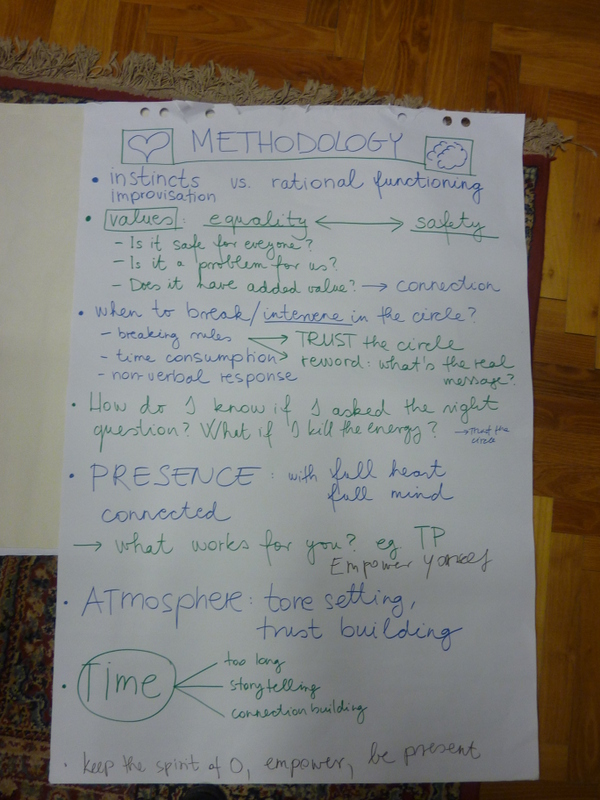 METHODOLOGY
• instincts vs. rational functioning
improvisation
• values: equality ⟷ safety
- Is it safe for everyone?
- Is it a problem for us?
- Does it have added value? → connection
• when to break/intervene in the circle?
- breaking rules → TRUST the circle
- time consumption → reword: what's the real
- non-verbal response message?
• How do I know if I asked the right
question? What if I kill the energy? → trust the
circle
• PRESENCE: with full heart
full mind
connected
→ what works for you? eg TP
Empower yourself
• ATmosphere: tone setting,
trust building
• Time
too long
storytelling
connection building
• keep the spirit of O, empower, be present